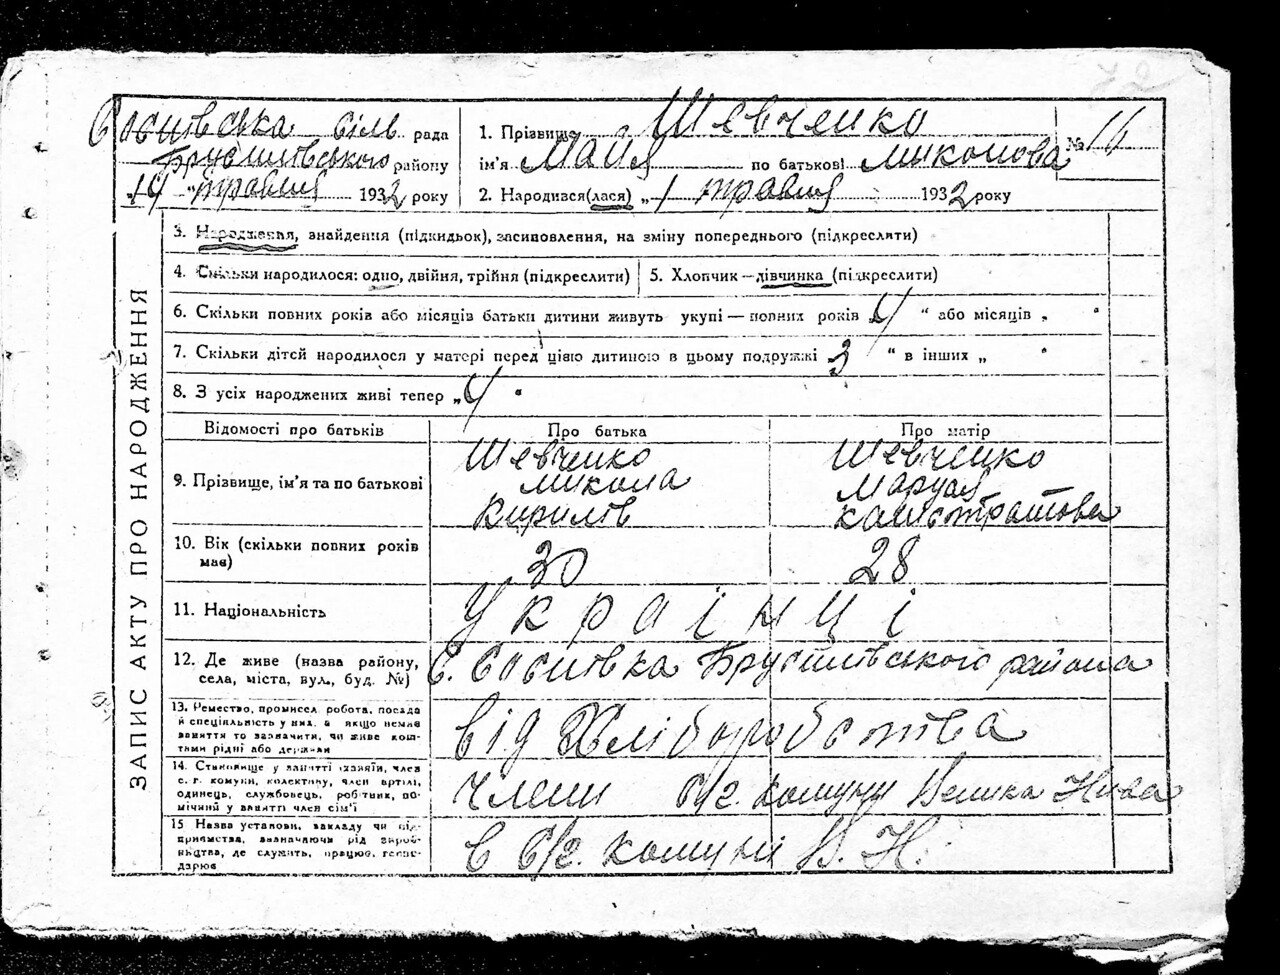 72
Сосиївська сіль рада
Брусилівського району
"14" травня 1932 року
1. Прізвище Шевченко
ім'я Майя по батькові Миколова
№ 16
2. Народився(лася) „1 травня 1932 року
ЗАПИС АКТУ ПРО НАРОДЖЕННЯ
3. Народження, знайдення (підкидьок), засиновлення, на зміну попереднього (підкреслити)
4. Скільки народилося: одно, двійня, трійня (підкреслити)
5. Хлопчик—дівчинка (підкреслити)
6. Скільки повних років або місяців батьки дитини живуть укупі—повних років 4 " або місяців „ "
7. Скільки дітей народилося у матері перед цією дитиною в цьому подружжі 3 " в інших „ "
8. З усіх народжених живі тепер „4 "
Відомості про батьків Про батька Про матір
9. Прізвище, ім'я та по батькові
Шевченко Микола Кирилів
Шевченко Маруся Калістратова
10. Вік (скільки повних років має)
30 28
11. Національність
Українці
12. Де живе (назва району, села, міста, вул., буд. №)
с. Сосиївка Брусилівського района
13. Ремество, промисел, робота, посада й спеціяльність у них, а якщо немає заняття то зазначити, чи живе коштами рідні або держави
від Хліборобства
14. Становище у занятті: хазяїн, член с. г. комуни, колективу, член артілі, одинець, службовець, робітник, помічний у занятті член сім'ї
члени с/г. комуни Велика Нива
15 Назва установи, закладу чи підприємства, зазначаючи рід виробництва, де служить, працює, господарює
в с/г. комуні В. Н.